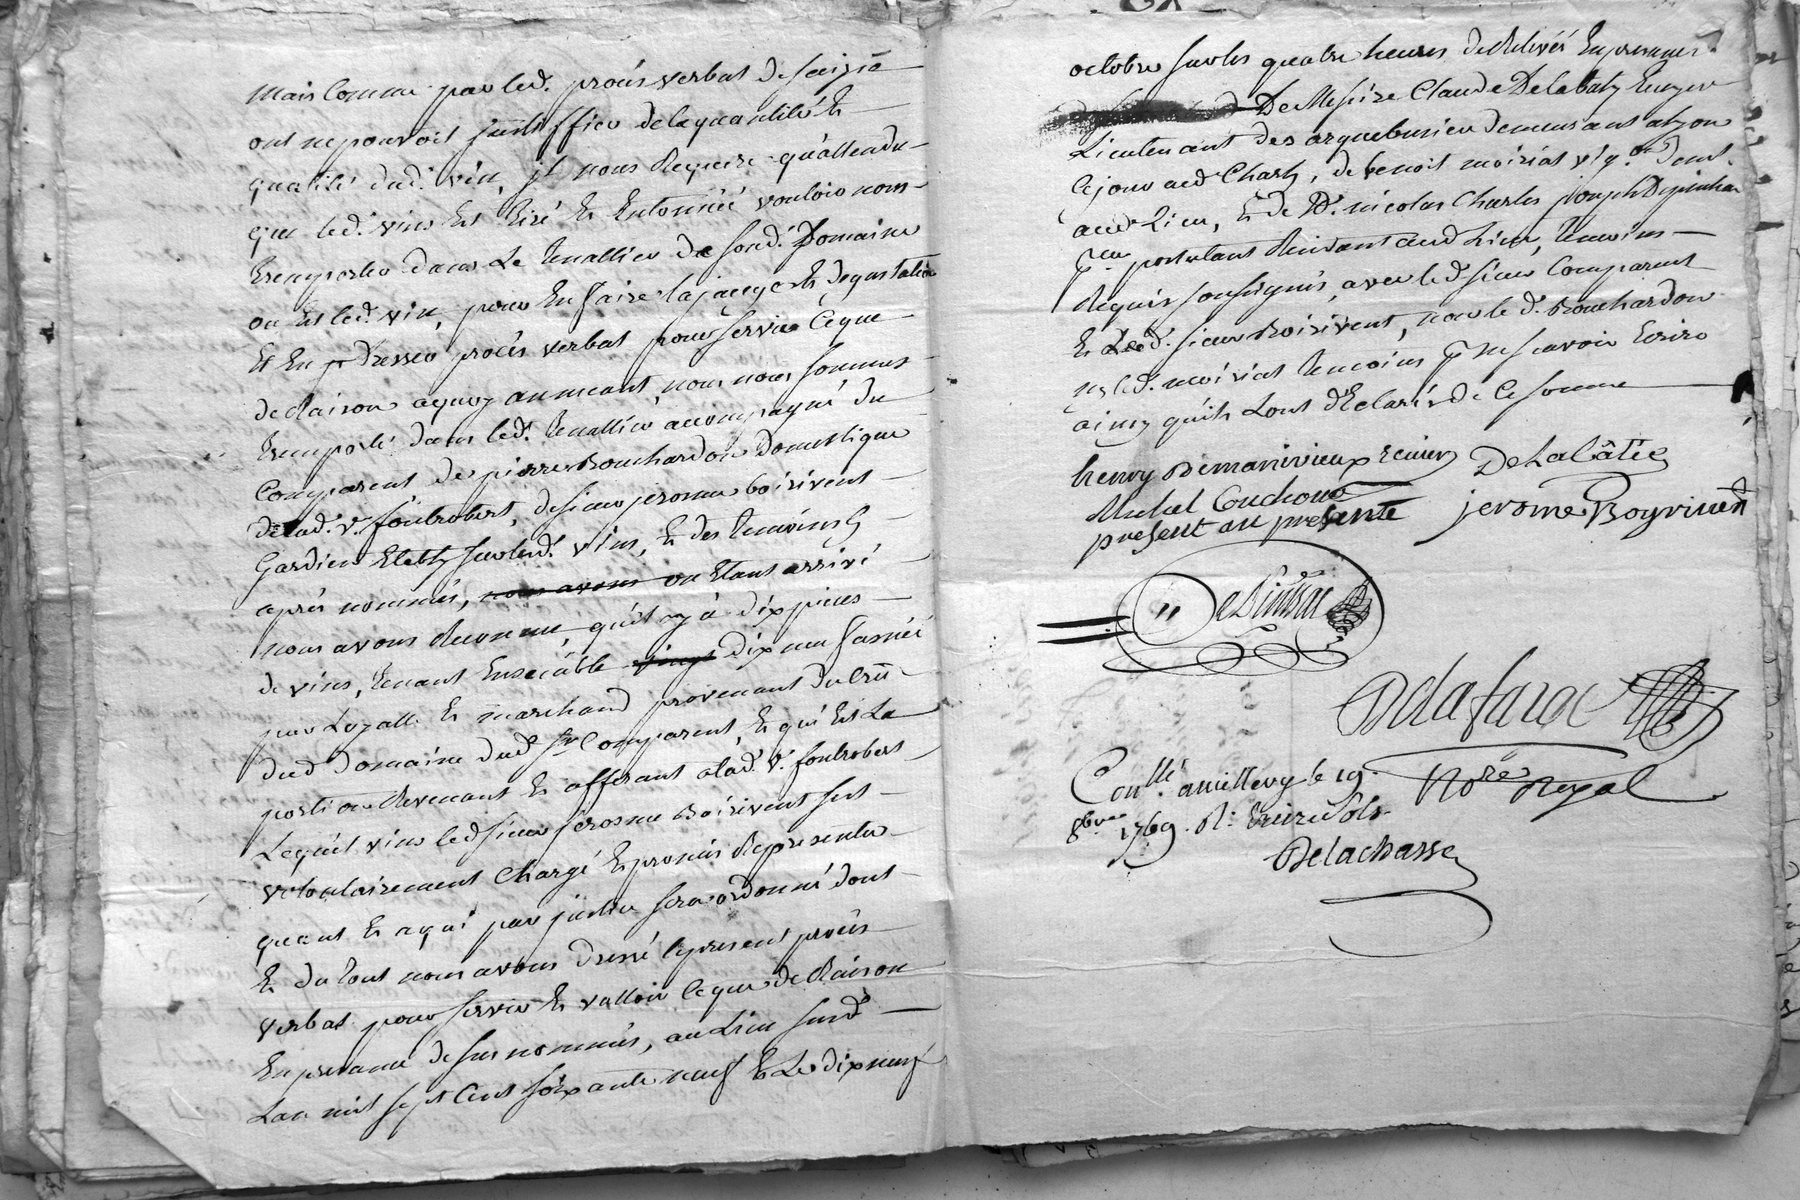 mais Comme par led. procés verbal de saisie
ont ne pouvoit justiffier de la quantité Et
qualité dud. vin, jl nous Requiere qu'attendu
que led. vins Est tiré Et Entonné vouloir nous
transporter dans Le tenallier de sond. Domaine
ou Est led. vin, pour En faire la jauge Et degustation
Et En dresser procés verbal pour servir Ce que
de Raison a quoy annuant, nous nous sommes
transporté dans led. tenallier accompagné du
Comparent de pierre Bouchardon domestique
de lad. ve. fontrobert, de sieur jerosme boirivent
Gardien Etably sur led. vins, Et des temoins
aprés nommés, nous avons ou Etant arrivé
nous avons Reconnu, qu'il y à dix pieces
de vins, tenant Ensemble vingt dix neuf asnées
par Loyalle Et marchand provenant du Crû
dud domaine dud sr. Comparent, Et qui Est La
portion Revenant Et afferant a lad. ve. fontrobert
Lequel vins led sieur jerosme Boirivent sest
volontairement Chargé Et promis Representer
quant Et a qui par justice sera ordonné dont
Et du tout nous avons dressé le present procés
verbal pour servir Et valloir Ce que de Raison
En presence des sus nommés, au Lieu susd.
Lan mil sept Cent soixante neuf Et Le dix neuf
octobre sur les quatre heures de Relevée En presence
De Messire Claude Delabaty Ecuyer
Lieutenant des arquebusiers demeurant a Lyon
Ce jour aud Charly, de benoit moiriat vig.on demt.
aud Lieu, Et de Me. nicolas Charles joseph
postulant Residant aud Lieu, temoins
Requis soussignés, avec led sieur Comparent
Et Led. sieur Boirivent, non le d. Bouchardon
ny led. moiriat temoins pr. ne scavoir Ecrire
ainsy qu'ils Lont déClaré de Ce somme
henry Demanivieux Delabâtie
Michel Couchoud
present au presente jerome Boyrivent
Delafarge
Conllé. a millery le 19. No.re Royal
8bre 1769. R. treize sols
Delachasse